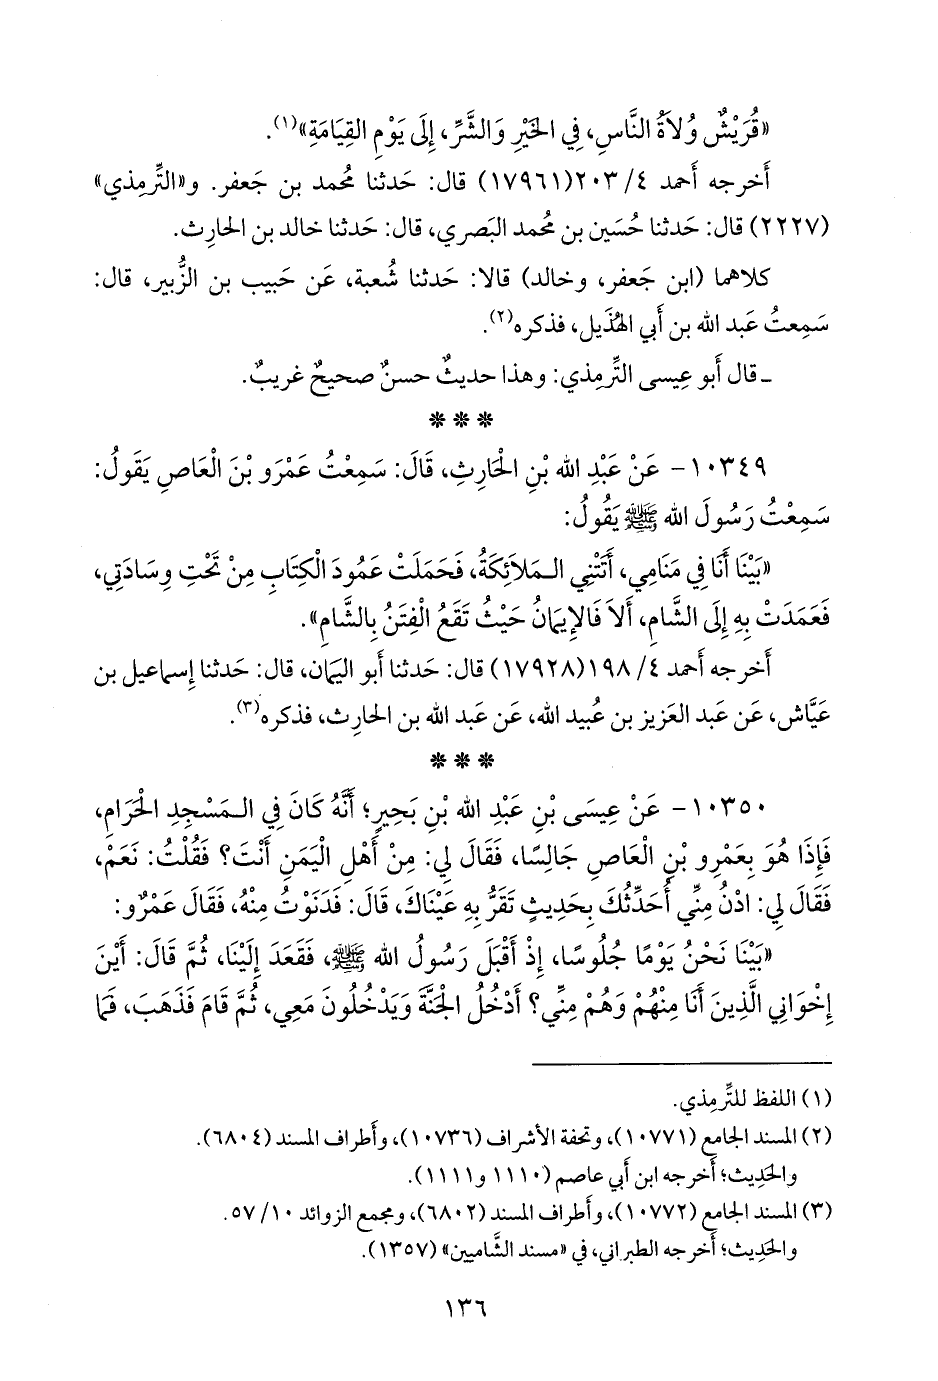 «قُرَيْشٌ وُلاَةُ النَّاسِ، فِي الخَيْرِ وَالشَّرِّ، إِلَى يَوْمِ القِيَامَةِ»(١).
أَخرجه أَحمد ٤/ ٢٠٣(١٧٩٦١) قال: حَدثنا مُحمد بن جَعفر. و«التِّرمِذي»
(٢٢٢٧) قال: حَدثنا حُسَين بن مُحمد البَصري، قال: حَدثنا خالد بن الحارِث.
كلاهما (ابن جَعفر، وخالد) قالا: حَدثنا شُعبة، عَن حَبيب بن الزُّبير، قال:
سَمِعتُ عَبد الله بن أَبي الهُذَيل، فذكره(٢).
ـ قال أَبو عِيسى التِّرمِذي: وهذا حديثٌ حسنٌ صحيحٌ غريبٌ.
* * *
١٠٣٤٩- عَنْ عَبْدِ الله بْنِ الْحَارِثِ، قَالَ: سَمِعْتُ عَمْرَو بْنَ الْعَاصِ يَقُولُ:
سَمِعْتُ رَسُولَ الله ﷺ يَقُولُ:
«بَيْنَا أَنَا فِي مَنَامِي، أَتَتْنِي الـمَلاَئِكَةُ، فَحَمَلَتْ عَمُودَ الْكِتَابِ مِنْ تَحْتِ وِسَادَتِي،
فَعَمَدَتْ بِهِ إِلَى الشَّامِ، أَلاَ فَالإِيمَانُ حَيْثُ تَقَعُ الْفِتَنُ بِالشَّامِ».
أَخرجه أَحمد ٤/ ١٩٨(١٧٩٢٨) قال: حَدثنا أَبو اليَمان، قال: حَدثنا إِسماعيل بن
عَيَّاش، عَن عَبد العَزيز بن عُبيد الله، عَن عَبد الله بن الحارِث، فذكره(٣).
* * *
١٠٣٥٠- عَنْ عِيسَى بْنِ عَبْدِ الله بْنِ بَحِيرٍ؛ أَنَّهُ كَانَ فِي الـمَسْجِدِ الحَرَامِ،
فَإِذَا هُوَ بِعَمْرِو بْنِ الْعَاصِ جَالِسًا، فَقَالَ لِي: مِنْ أَهْلِ الْيَمَنِ أَنْتَ؟ فَقُلْتُ: نَعَمْ،
فَقَالَ لِي: ادْنُ مِنِّي أُحَدِّثْكَ بِحَدِيثٍ تَقَرُّ بِهِ عَيْنَاكَ، قَالَ: فَدَنَوْتُ مِنْهُ، فَقَالَ عَمْرٌو:
«بَيْنَا نَحْنُ يَوْمًا جُلُوسًا، إِذْ أَقْبَلَ رَسُولُ الله ﷺ، فَقَعَدَ إِلَيْنَا، ثُمَّ قَالَ: أَيْنَ
إِخْوَانِي الَّذِينَ أَنَا مِنْهُمْ وَهُمْ مِنِّي؟ أَدْخُلُ الجَنَّةَ وَيَدْخُلُونَ مَعِي، ثُمَّ قَامَ فَذَهَبَ، فَمَا
(١) اللفظ للتِّرمِذي.
(٢) المسند الجامع (١٠٧٧١)، وتحفة الأشراف (١٠٧٣٦)، وأَطراف المسند (٦٨٠٤).
والحَدِيث؛ أَخرجه ابن أَبي عاصم (١١١٠ و١١١١).
(٣) المسند الجامع (١٠٧٧٢)، وأَطراف المسند (٦٨٠٢)، ومَجمَع الزوائد ١٠/ ٥٧.
والحَدِيث؛ أَخرجه الطبراني، في «مسند الشَّاميين» (١٣٥٧).
١٣٦